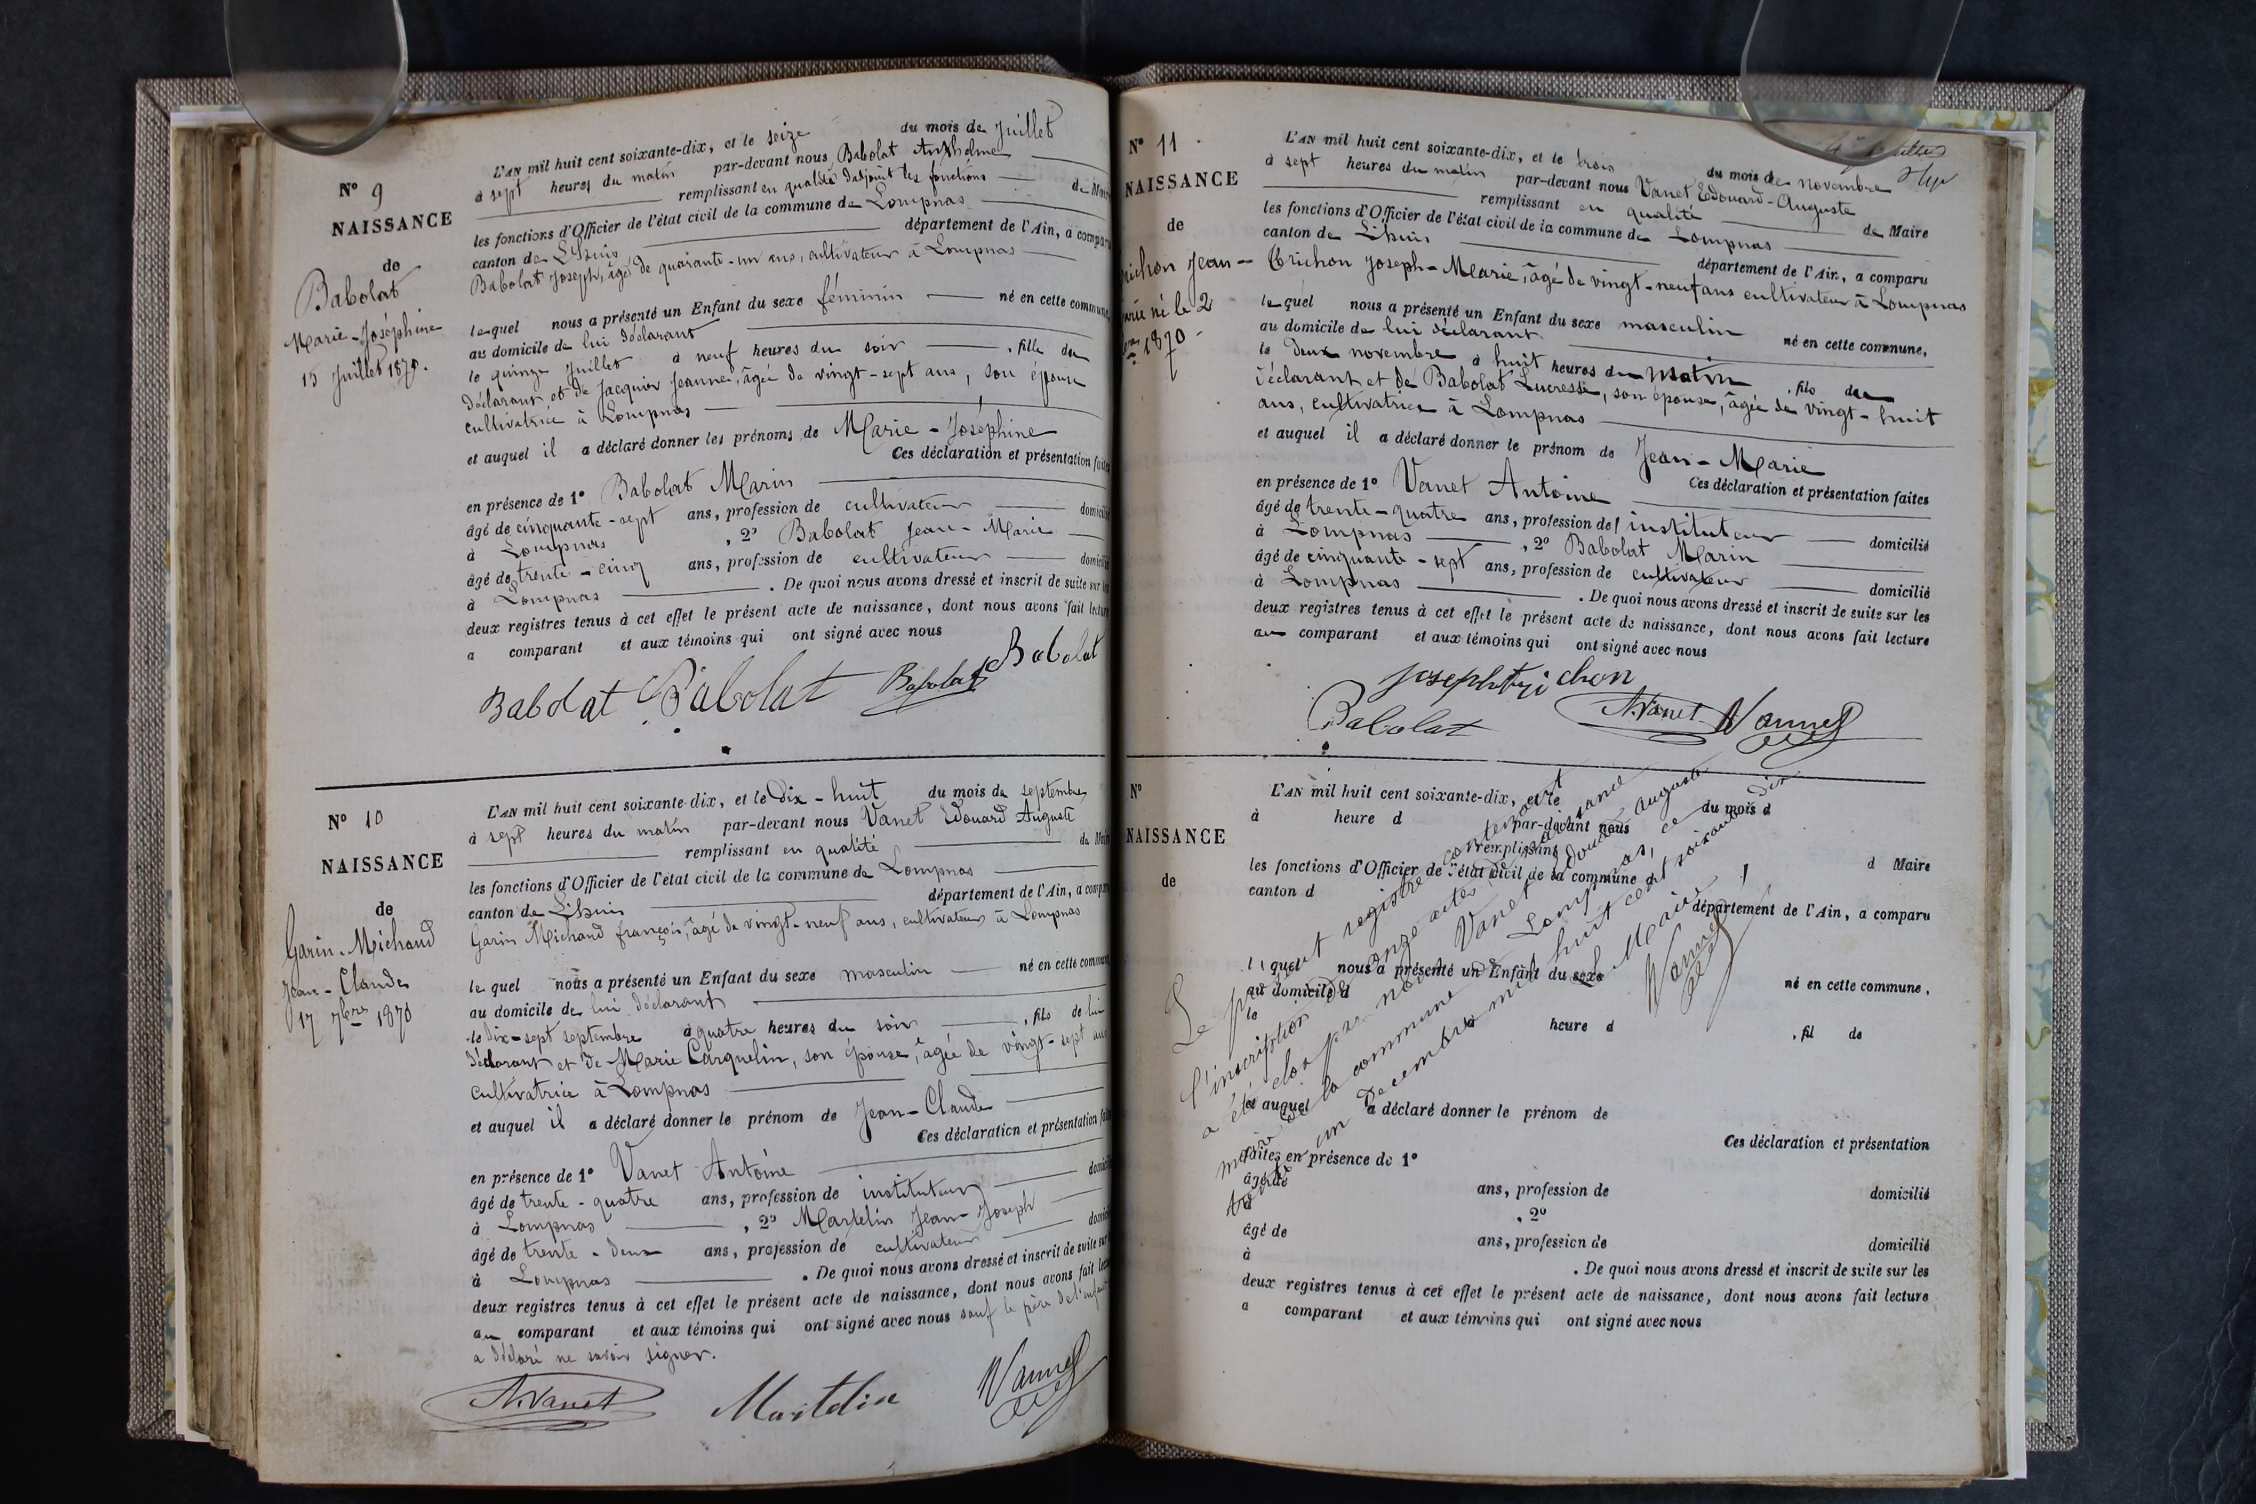 N° 9
NAISSANCE
de
Babolat
Marie-Joséphine
15 Juillet 1870.
L'AN mil huit cent soixante-dix, et le seize du mois de Juillet
à sept heures du matin par-devant nous Babolat Anthelme
remplissant en qualité d'adjoint les fonctions de Maire
les fonctions d'Officier de l'état civil de la commune de Lompnas
canton de Lhuis département de l'Ain, a comparu
Babolat Joseph, âgé de quarante-un ans, cultivateur à Lompnas
lequel nous a présenté un Enfant du sexe féminin né en cette commune,
au domicile de lui déclarant
le quinze Juillet à neuf heures du soir, fille du
déclarant et de Jacquier Jeanne, âgée de vingt-sept ans, son épouse
cultivatrice à Lompnas
et auquel il a déclaré donner les prénoms de Marie-Joséphine
Ces déclaration et présentation faites
en présence de 1° Babolat Marin
âgé de cinquante-sept ans, profession de cultivateur domicilié
à Lompnas, 2° Babolat Jean-Marie
âgé de trente-cinq ans, profession de cultivateur domicilié
à Lompnas. De quoi nous avons dressé et inscrit de suite sur les
deux registres tenus à cet effet le présent acte de naissance, dont nous avons fait lecture
a comparant et aux témoins qui ont signé avec nous
Babolat Babolat Babolat Babolat
N° 10
NAISSANCE
de
Garin-Michaud
Jean-Claude
17 7bre 1870
L'AN mil huit cent soixante-dix, et le Dix-huit du mois de septembre
à sept heures du matin par-devant nous Vanet Edouard Auguste
remplissant en qualité de Maire
les fonctions d'Officier de l'état civil de la commune de Lompnas
canton de Lhuis département de l'Ain, a comparu
Garin Michaud françois, âgé de vingt-neuf ans, cultivateur à Lompnas
lequel nous a présenté un Enfant du sexe masculin né en cette commune
au domicile de lui déclarant
le dix-sept septembre à quatre heures du soir, fils de lui
déclarant et de Marie Carquelin, son épouse, âgée de vingt-sept ans
cultivatrice à Lompnas
et auquel il a déclaré donner le prénom de Jean-Claude
Ces déclaration et présentation faites
en présence de 1° Vanet Antoine
âgé de trente-quatre ans, profession de instituteur domicilié
à Lompnas, 2° Martelin Jean-Joseph
âgé de trente-deux ans, profession de cultivateur domicilié
à Lompnas. De quoi nous avons dressé et inscrit de suite sur
deux registres tenus à cet effet le présent acte de naissance, dont nous avons fait lecture
au comparant et aux témoins qui ont signé avec nous sauf le père de l'enfant
a déclaré ne savoir signer.
A. Vanet Martelin Vannet
N° 11
NAISSANCE
de
richon Jean-
arie né le 2
1870
L'AN mil huit cent soixante-dix, et le trois du mois de novembre
à sept heures du matin par-devant nous Vanet Edouard-Auguste
remplissant en qualité de Maire
les fonctions d'Officier de l'état civil de la commune de Lompnas
canton de Lhuis département de l'Ain, a comparu
Trichon Joseph-Marie, âgé de vingt-neuf ans cultivateur à Lompnas
lequel nous a présenté un Enfant du sexe masculin né en cette commune,
au domicile de lui déclarant
le deux novembre à huit heures du matin, fils du
déclarant et de Babolat Lucresse, son épouse, âgée de vingt-huit
ans, cultivatrice à Lompnas
et auquel il a déclaré donner le prénom de Jean-Marie
Ces déclaration et présentation faites
en présence de 1° Vanet Antoine
âgé de trente-quatre ans, profession de instituteur domicilié
à Lompnas, 2° Babolat Marin
âgé de cinquante-sept ans, profession de cultivateur domicilié
à Lompnas. De quoi nous avons dressé et inscrit de suite sur les
deux registres tenus à cet effet le présent acte de naissance, dont nous avons fait lecture
au comparant et aux témoins qui ont signé avec nous
joseph trichon
Babolat A. Vanet Vannet
N°
NAISSANCE
de
L'AN mil huit cent soixante-dix, et le du mois d
à heure d par-devant nous
remplissant d Maire
les fonctions d'Officier de l'état civil de la commune d
canton d département de l'Ain, a comparu
lequel nous a présenté un Enfant du sexe né en cette commune,
au domicile d
le heure d, fil de
et auquel a déclaré donner le prénom de
Ces déclaration et présentation
faites en présence de 1°
âgé de ans, profession de domicilié
à, 2°
âgé de ans, profession de domicilié
à. De quoi nous avons dressé et inscrit de suite sur les
deux registres tenus à cet effet le présent acte de naissance, dont nous avons fait lecture
a comparant et aux témoins qui ont signé avec nous
Le présent registre contenant
l'inscription de onze actes de naissance
a été clos par nous Vanet Edouard Auguste
maire de la commune de Lompnas, ce
trente un Décembre mil huit cent soixante Dix
Le Maire,
Vannet